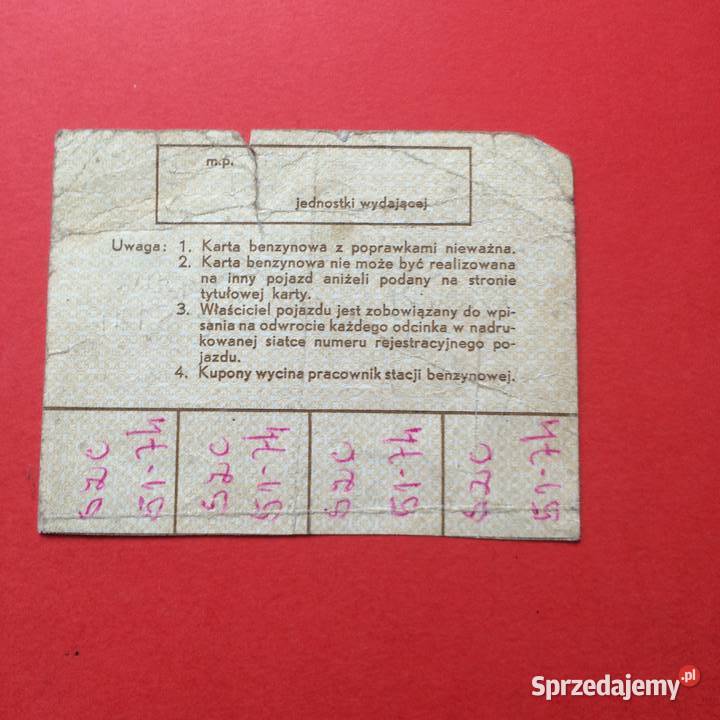 m.p.
jednostki wydającej
Uwaga: 1. Karta benzynowa z poprawkami nieważna.
2. Karta benzynowa nie może być realizowana
na inny pojazd aniżeli podany na stronie
tytułowej karty.
3. Właściciel pojazdu jest zobowiązany do wpi-
sania na odwrocie każdego odcinka w nadru-
kowanej siatce numeru rejestracyjnego po-
jazdu.
4. Kupony wycina pracownik stacji benzynowej.
SZC
51-74
SZC
51-74
SZC
51-74
SZC
51-74
Sprzedajemy.pl